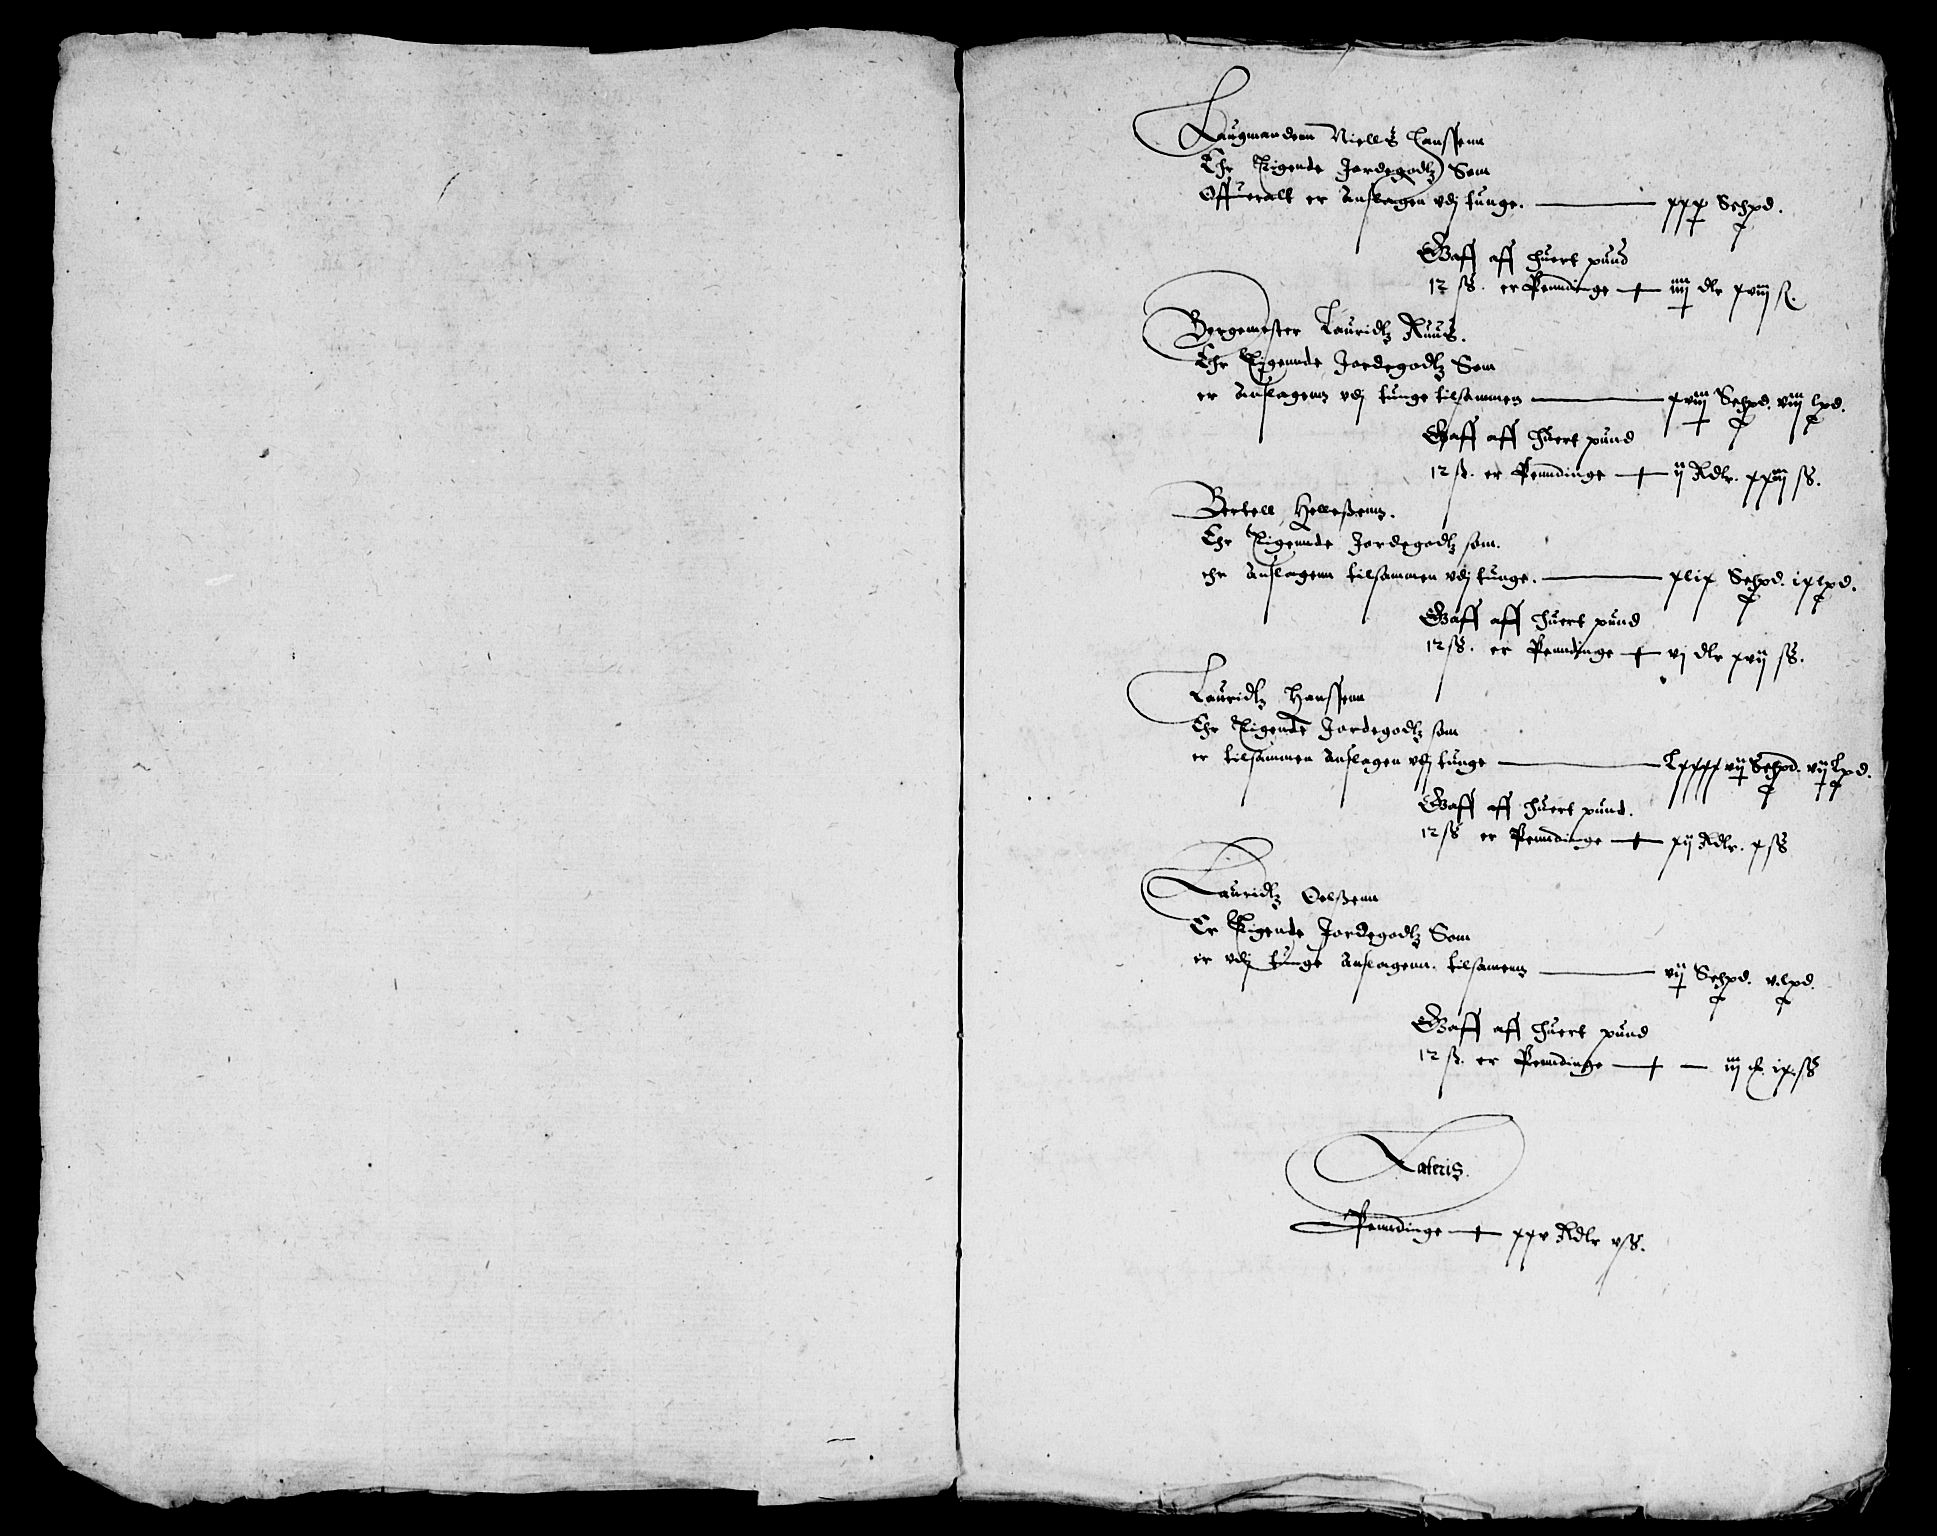 Laugmandenn Niells Hanssenn
Ehr Eigende Jordegodtz Som
Offueralt er Anslagen vdj tunge. xxx Schpd.
Gaff aff huert pund
12 ss. er Penndinge iiij dlr xviij s.
Borgemester Lauridtz Ruus.
Ehr Eigennde Jordegodtz Som
er Anslagenn vdj tunge tilsammen xviij Schpd. viij lpd.
Gaff aff huert pund
12 ss. er Penndinge ij Rdlr. xxvij ss.
Bertell Hellessenn.
Ehr Eigennde Jordegodtz som.
ehr Anslagenn tilsammen vdj tunge. xlix Schpd. ix lpd.
Gaff aff huert pund
12 ss. er Penndinge vj dlr xvij ss.
Lauridtz Hanssenn
Ehr Eigende Jordegodtz som
er tilsammen Anslagen vdj tunge Lxxxxvij Schpd. vij Lpd.
Gaff aff huert pund.
12 ss er Penndinge xij Rdlr. x ss
Lauridtz Oelssenn
Er Eigende Jordegodtz Som
er vdj tunge Anslagenn. tilsamenn vij Schpd. v. lpd.
Gaff aff huert pund
12 ss. er Penndinge iij ix ss
Lateris.
Penndinge xxv Rdlr v ss.